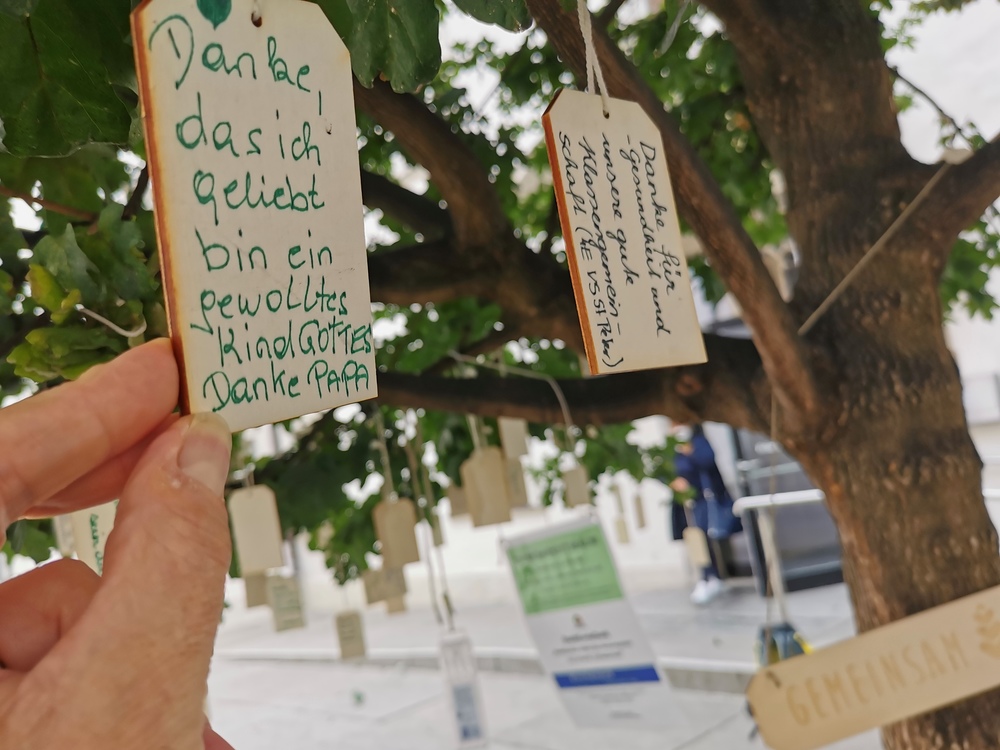 Danke,
das ich
geliebt
bin ein
gewolltes
Kind GOTTES
Danke PAPA
Danke für
- Gesundheit und
unsere gute
Klassengemein-
schaft
GEMEINSAM